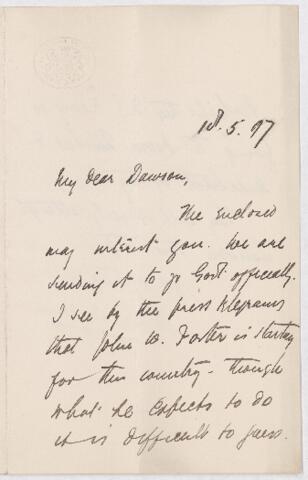 18.5.97
My dear Dawson,
The enclosed
may interest you. We are
sending it to yr Govt officially.
I see by the press telegrams
that John W. Foster is starting
for this country - though
what he expects to do
it is difficult to guess.